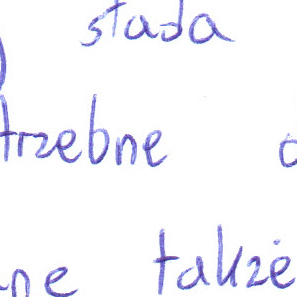 stada
trzebne
ne także